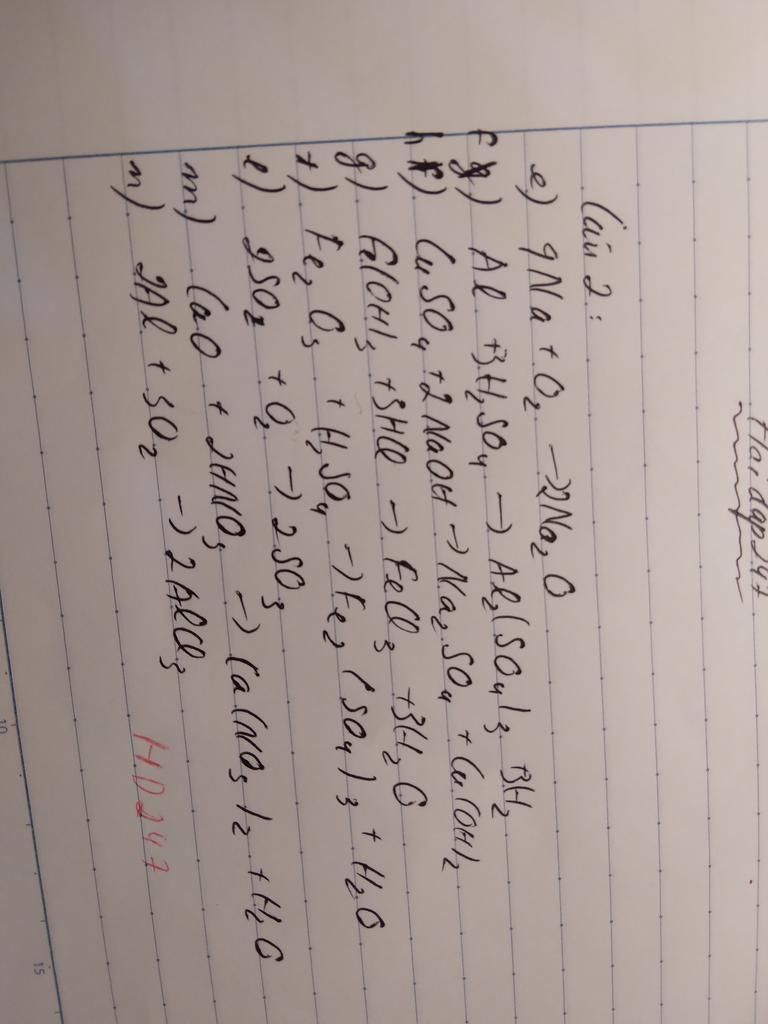 Haidqp247
Câu 2:
e) 4Na + O₂ → 2Na₂O
f) Al + 3H₂SO₄ → Al₂(SO₄)₃ + 3H₂
h) CuSO₄ + 2NaOH → Na₂SO₄ + Cu(OH)₂
g) Fe(OH)₃ + 3HCl → FeCl₃ + 3H₂O
t) Fe₂O₃ + H₂SO₄ → Fe₂(SO₄)₃ + H₂O
l) 2SO₂ + O₂ → 2SO₃
m) CaO + 2HNO₃ → Ca(NO₃)₂ + H₂O
n) 2Al + 3O₂ → 2AlCl₃
HD247
10
15